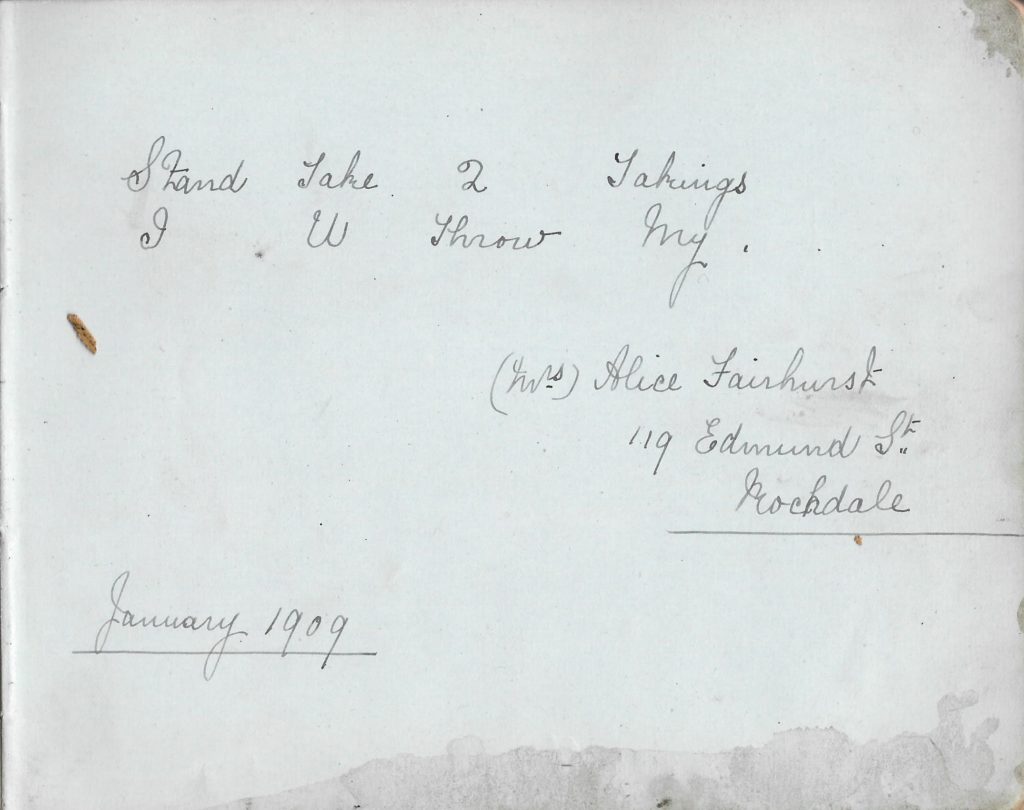 Stand Take 2 Takings
I U Throw My.
(Mrs) Alice Fairhurst
119 Edmund St.
Rochdale
January 1909